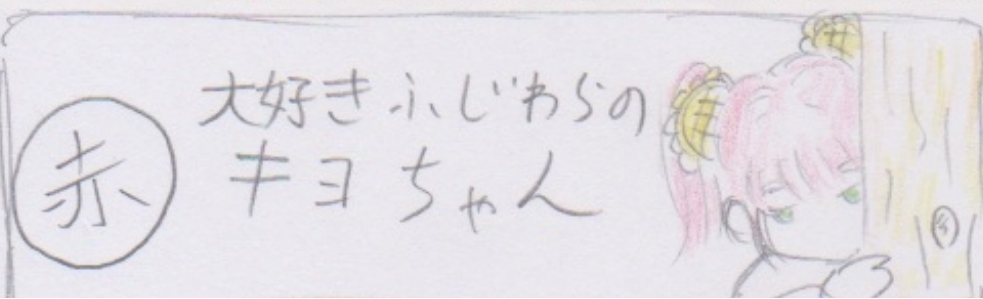 赤
大好きふじわらの
キヨちゃん